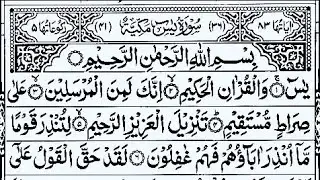 اٰیَاتُهَا ۸۳ (۳۶) سُوْرَةُ یٰسٓ مَکِّیَّةٌ (۴۱) رُکُوْعَاتُهَا ۵
بِسْمِ اللّٰهِ الرَّحْمٰنِ الرَّحِیْمِ
یٰسٓ ۚ وَالْقُرْاٰنِ الْحَکِیْمِ ۙ اِنَّكَ لَمِنَ الْمُرْسَلِیْنَ ۙ عَلٰی
صِرَاطٍ مُّسْتَقِیْمٍ ؕ تَنْزِیْلَ الْعَزِیْزِ الرَّحِیْمِ ۙ لِتُنْذِرَ قَوْمًا
مَّاۤ اُنْذِرَ اٰبَآؤُهُمْ فَهُمْ غٰفِلُوْنَ لَقَدْ حَقَّ الْقَوْلُ عَلٰۤی